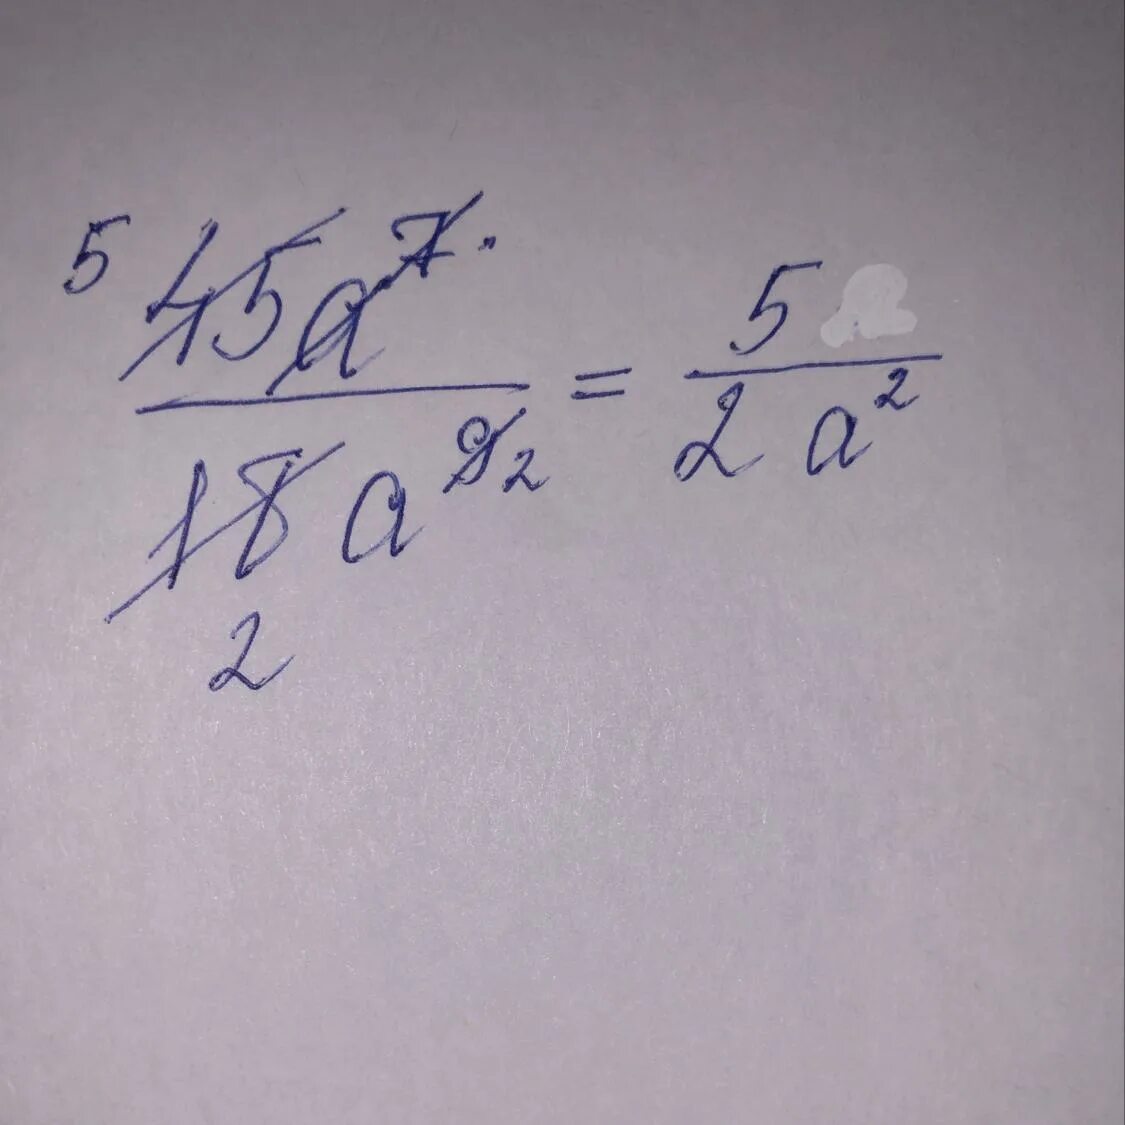 5 45a⁷
18a⁹ 2 = 5
2a²
2